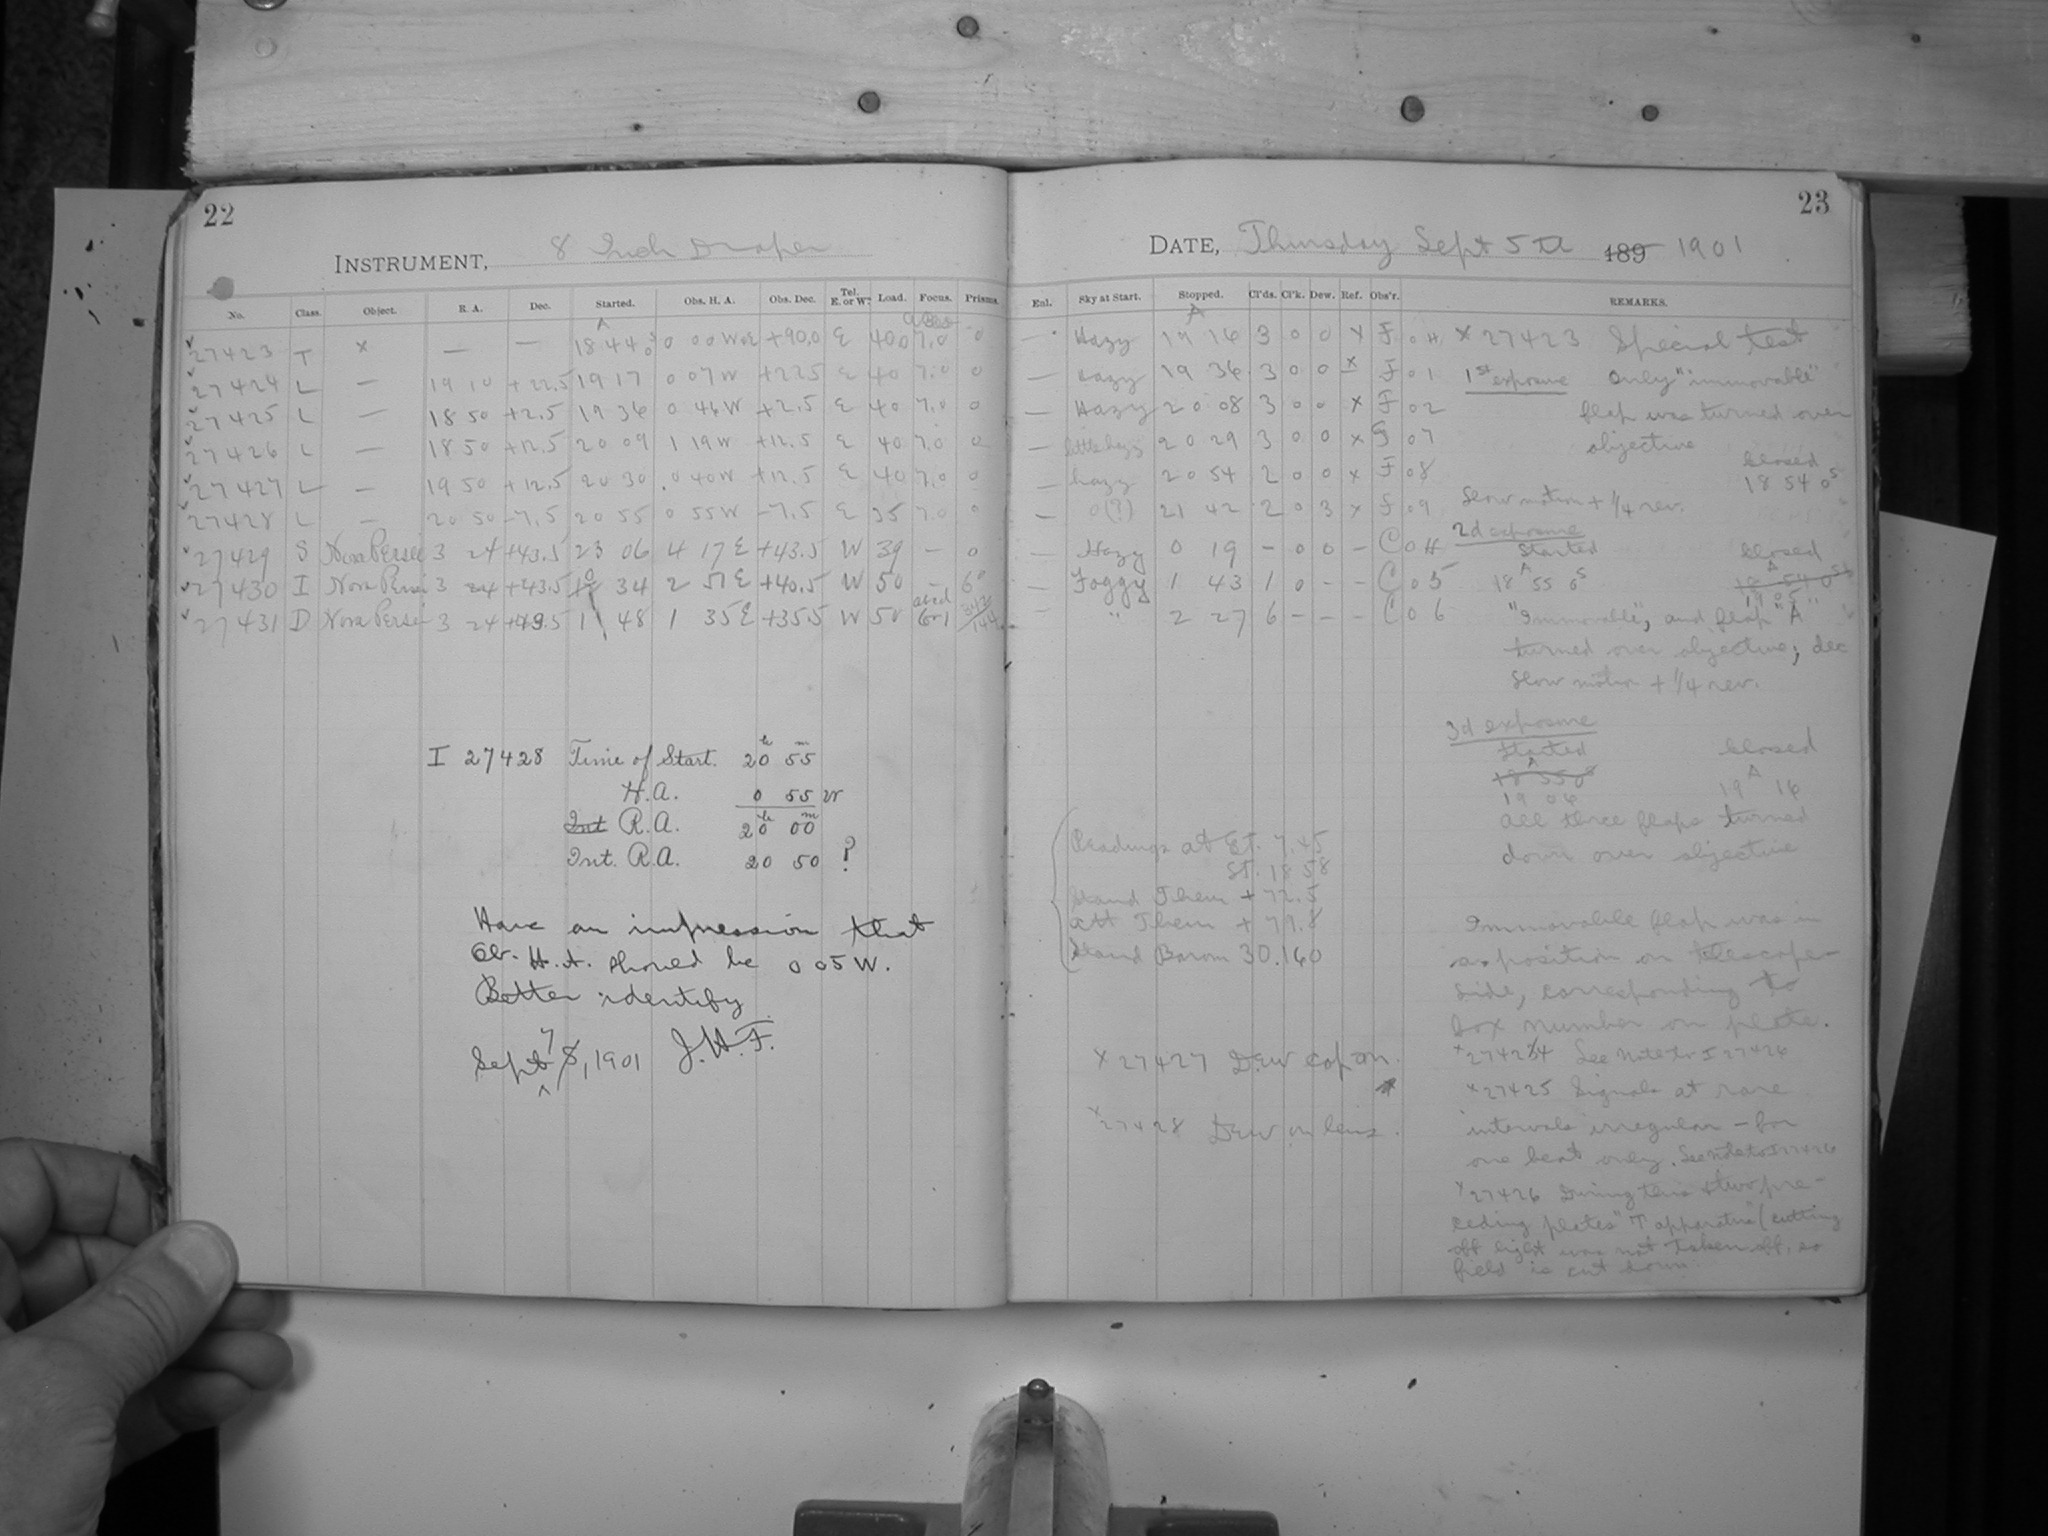 22
INSTRUMENT, 8 Inch Draper
No. Class. Object. R. A. Dec. Started. Obs. H. A. Obs. Dec. Tel. E. or W. Load. Focus. Prisms.
27423 T x — — 18 44 0 0 00 W or E +90.0 E 400 7.0 0
27424 L — 19 10 +22.5 19 17 0 07 W +22.5 E 40 7.0 0
27425 L — 18 50 +2.5 19 36 0 46 W +2.5 E 40 7.0 0
27426 L — 18 50 +12.5 20 09 1 19 W +12.5 E 40 7.0 0
27427 L — 19 50 +12.5 20 30 0 40 W +12.5 E 40 7.0 0
27428 L — 20 50 -7.5 20 55 0 55 W -7.5 E 35 7.0 0
27429 S Nova Persei 3 24 +43.5 23 06 4 17 E +43.5 W 39 — 0
27430 I Nova Persei 3 24 +43.5 34 2 51 E +40.5 W 50 — 6°
27431 D Nova Persei 3 24 +43.5 1 48 1 35 E +35.5 W 50
I 27428 Time of Start. 20h 55m
H.A. 0 55 W
Int R.A. 20h 00m
Int. R.A. 20 50 ?
Have an impression that
Ob. H.A. should be 0 05 W.
Better identify
Sept 7 8, 1901 J.H.F.
23
DATE, Thursday Sept 5th 189 1901
Enl. Sky at Start. Stopped. Cl'ds. Cl'k. Dew. Ref. Obs'r. REMARKS.
— Hazy 19 16 3 0 0 x F 0 H
— Hazy 19 36 3 0 0 x F 0 1
— Hazy 20 08 3 0 0 x F 0 2
— little hazy 20 29 3 0 0 x F 0 7
— hazy 20 54 2 0 0 x F 0 8
— 0(?) 21 42 2 0 3 x F 0 9
— Hazy 0 19 — 0 0 — C 0 H
— Foggy 1 43 1 0 — — C 0 5
— " 2 27 6 — — — C 0 6
x 27423 Special test
1st exposure Only "immovable"
flap was turned over
objective
closed
18 54 0s
Slow motion + 1/4 rev.
2d exposure
Started closed
18 55 0s 18 54 0s
19 05
"Immovable", and flap "A"
turned over objective; dec
slow motion + 1/4 rev.
3d exposure
Started closed
18 55 0s
19 06 19 16
All three flaps turned
down over objective
Readings at ET. 7.45
ST. 18 58
Stand Therm + 72.5
Att Therm + 79.8
Stand Barom 30.160
Immovable flap was in
a position on telescope-
side, corresponding to
box number on plate.
x 27424 See note to I 27426
x 27425 Signals at rare
intervals irregular - for
one beat only. See note to I 27426
x 27426 During this & two pre-
ceding plates "T apparatus" (cutting
off light was not taken off, so
field is cut down
x 27427 Dew cap on.
x 27428 Dew on lens.